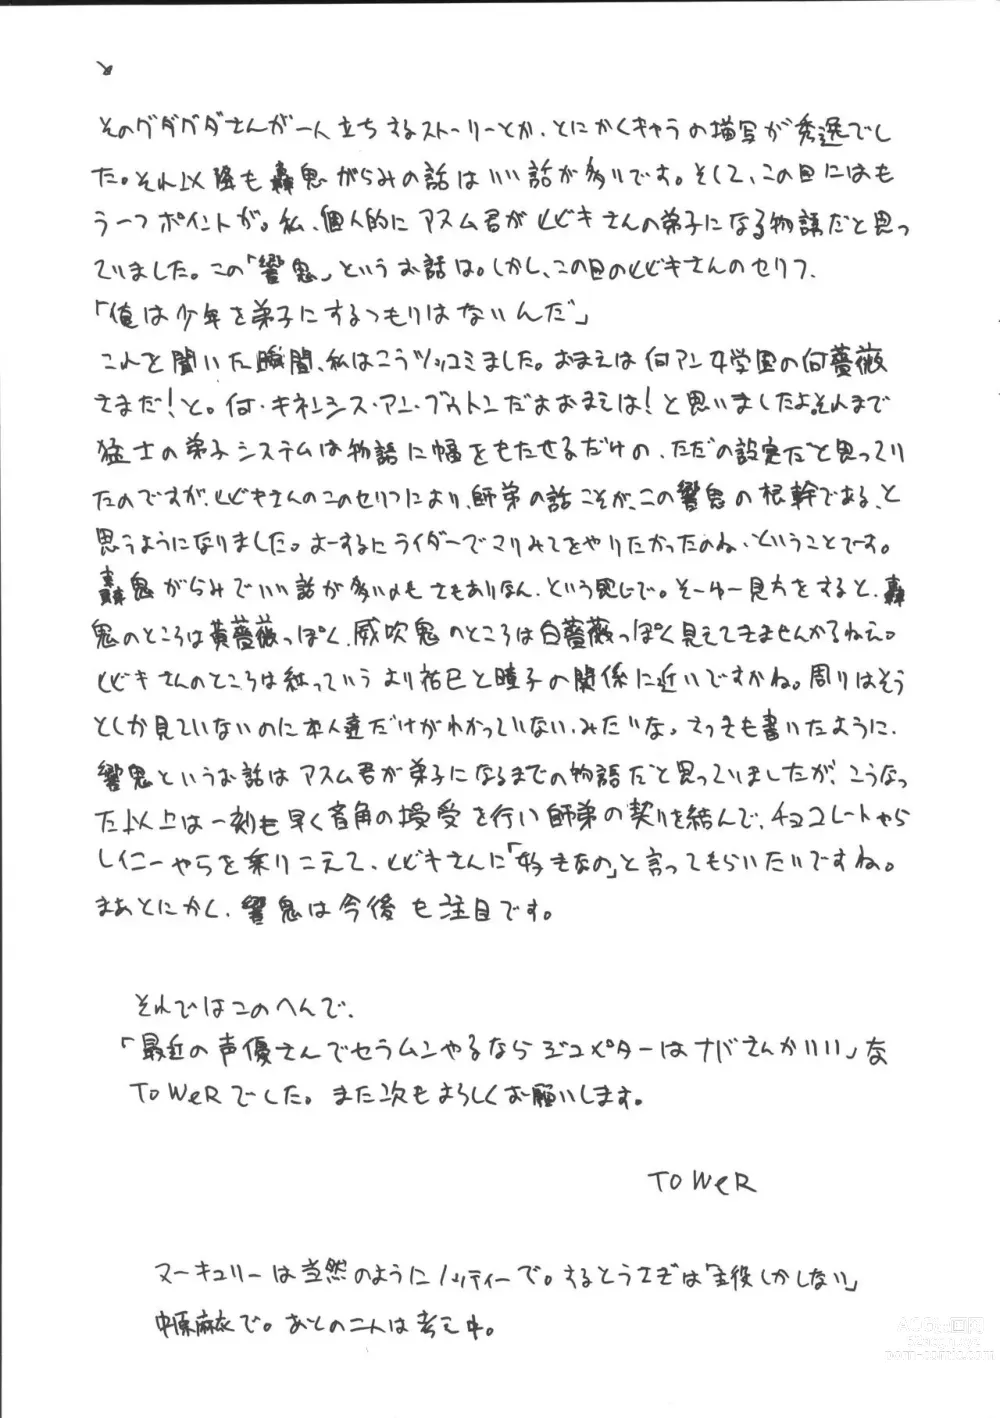 そのグダグダさんが一人立ちするストーリーとか、とにかくキャラの描写が秀逸でし
た。それ以降も轟鬼がらみの話はいい話が多いです。そして、この回にはも
う一つポイントが。私、個人的にアスム君がヒビキさんの弟子になる物語だと思っ
ていました。この「響鬼」というお話は。しかし、この回のヒビキさんのセリフ、
「俺は少年を弟子にするつもりはないんだ」
これを聞いた瞬間、私はこうツッコミました。おまえは何アン女学園の何薔薇
さまだ!と。何・キネンシス・アン・ブゥトンだよおまえは!と思いましたよ。それまで
猛士の弟子システムは物語に幅をもたせるだけの、ただの設定だと思ってい
たのですが、ヒビキさんのこのセリフにより、師弟の話こそが、この響鬼の根幹である、と
思うようになりました。よーするにライダーでマリみてをやりたかったのね、ということです。
轟鬼がらみでいい話が多いのもさもありなん、という感じで。そーゆー見方をすると、轟
鬼のところは黄薔薇っぽく、威吹鬼のところは白薔薇っぽく見えてきませんかねぇ。
ヒビキさんのところは紅っていうより祐巳と瞳子の関係に近いですかね。周りはそう
としか見ていないのに本人達だけがわかっていない、みたいな。さっきも書いたように、
響鬼というお話はアスム君が弟子になるまでの物語だと思っていましたが、こうなっ
た以上は一刻も早く音角の授受を行い師弟の契りを結んで、チョコレートやら
レイニーやらを乗りこえて、ヒビキさんに「好きなの」と言ってもらいたいですね。
まあとにかく、響鬼は今後も注目です。
それではこのへんで、
「最近の声優さんでセラムンやるならジュピターはナバさんがいい」な
TOWeRでした。また次もよろしくお願いします。
TOWeR
マーキュリーは当然のようにノッティーで。するとうさぎは「主役しかしない」
中原麻衣で。あとの二人は考え中。